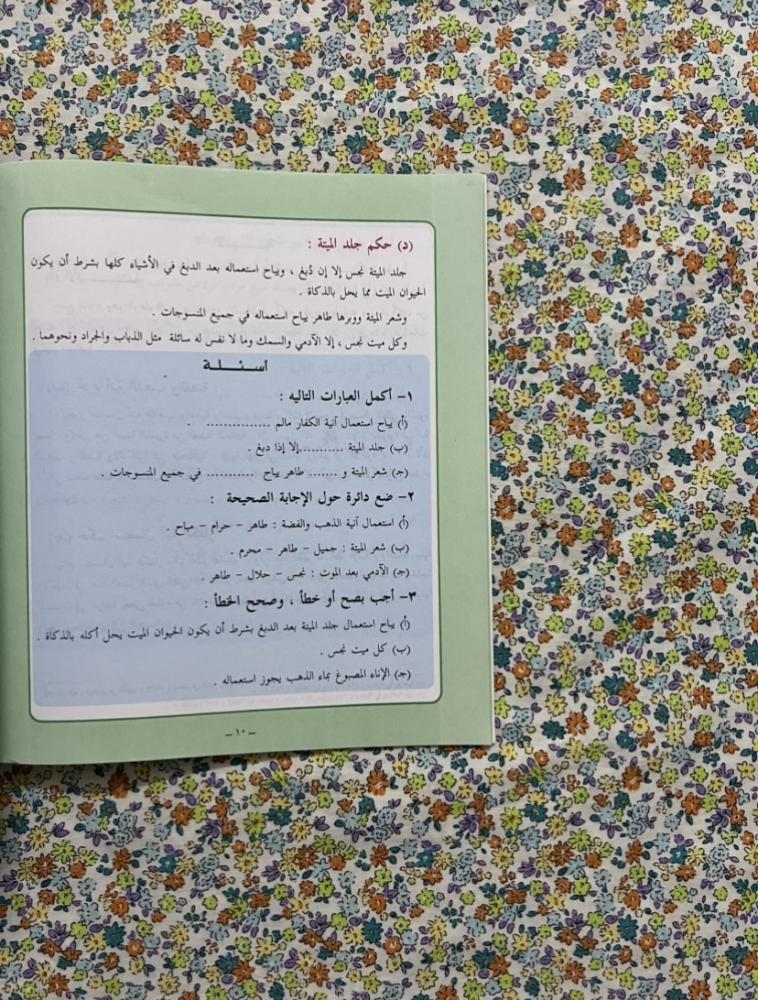 (د) حكم جلد الميتة :
جلد الميتة نجس إلا إن دُبغ ، ويباح استعماله بعد الدبغ في الأشياء كلها بشرط أن يكون
الحيوان الميت مما يحل بالذكاة .
وشعر الميتة ووبرها طاهر يباح استعماله في جميع المنسوجات .
وكل ميت نجس ، إلا الآدمي والسمك وما لا نفس له سائلة مثل الذباب والجراد ونحوهما .
أسئـــلة
١- أكمل العبارات التاليه :
(أ) يباح استعمال آنية الكفار مالم ............... .
(ب) جلد الميتة ..........إلا إذا دبغ .
(ج) شعر الميتة و ....... طاهر يباح ........... في جميع المنسوجات .
٢- ضع دائرة حول الإجابة الصحيحة :
(أ) استعمال آنية الذهب والفضة : طاهر - حرام - مباح .
(ب) شعر الميتة : جميل - طاهر - محرم .
(ج) الآدمي بعد الموت : نجس - حلال - طاهر .
٣- أجب بصح أو خطأ ، وصحح الخطأ :
(أ) يباح استعمال جلد الميتة بعد الدبغ بشرط أن يكون الحيوان الميت يحل أكله بالذكاة .
(ب) كل ميت نجس .
(ج) الإناء المصبوغ بماء الذهب يجوز استعماله .
– ١٠ –